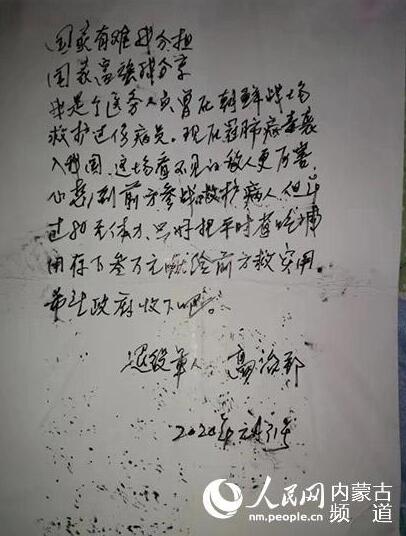 国家有难我分担
国家富强我分享
我是个医务人员曾在朝鲜战场
救护过伤病员。现在冠肺病毒袭
入我国，这场看不见的敌人更厉害，
心想到前方参战救护病人但年
过80无体力只好把平时省吃俭
用存下叁万元献给前方救灾用。
希望政府收下吧。
退役军人
2020年元月31号
人民网 内蒙古
nm.people.cn 频道